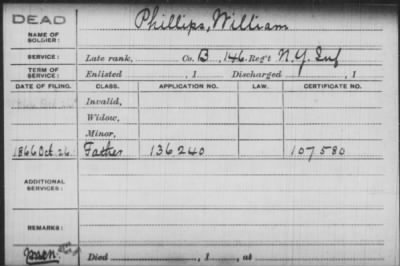 DEAD
NAME OF SOLDIER: Phillips, William
SERVICE: Late rank, Co. B, 146 Reg't N.Y. Inf
TERM OF SERVICE: Enlisted , 1 Discharged , 1
DATE OF FILING. CLASS. APPLICATION NO. LAW. CERTIFICATE NO.
Invalid,
Widow,
Minor,
1866 Oct. 26 Father 136240 107580
ADDITIONAL SERVICES:
REMARKS:
Died , 1 , at